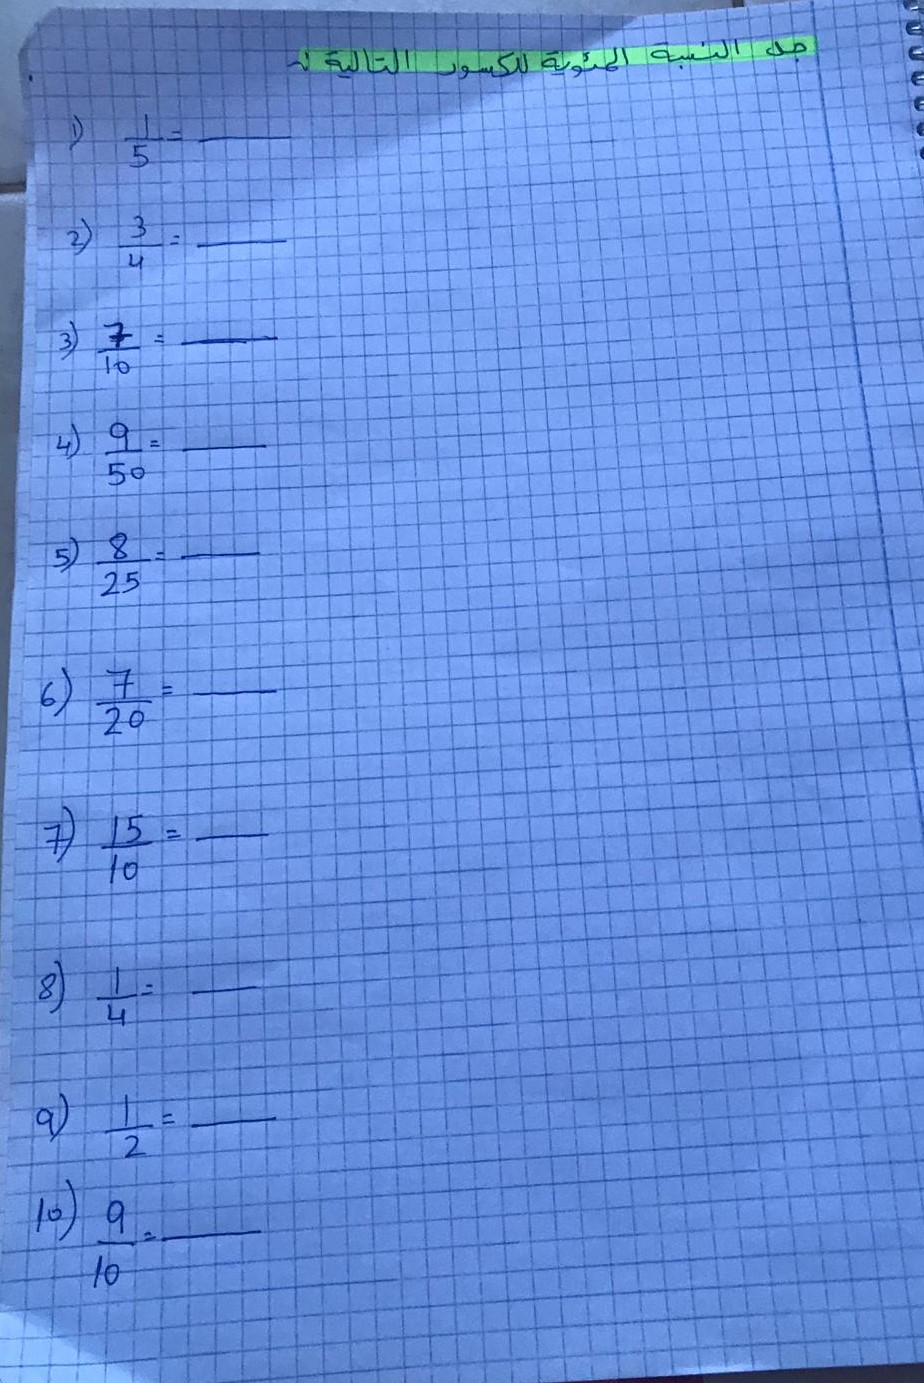 جد النسبة المئوية للكسور التالية :
1) 1/5 = ____
2) 3/4 = ____
3) 7/10 = ____
4) 9/50 = ____
5) 8/25 = ____
6) 7/20 = ____
7) 15/10 = ____
8) 1/4 = ____
9) 1/2 = ____
10) 9/10 = ____